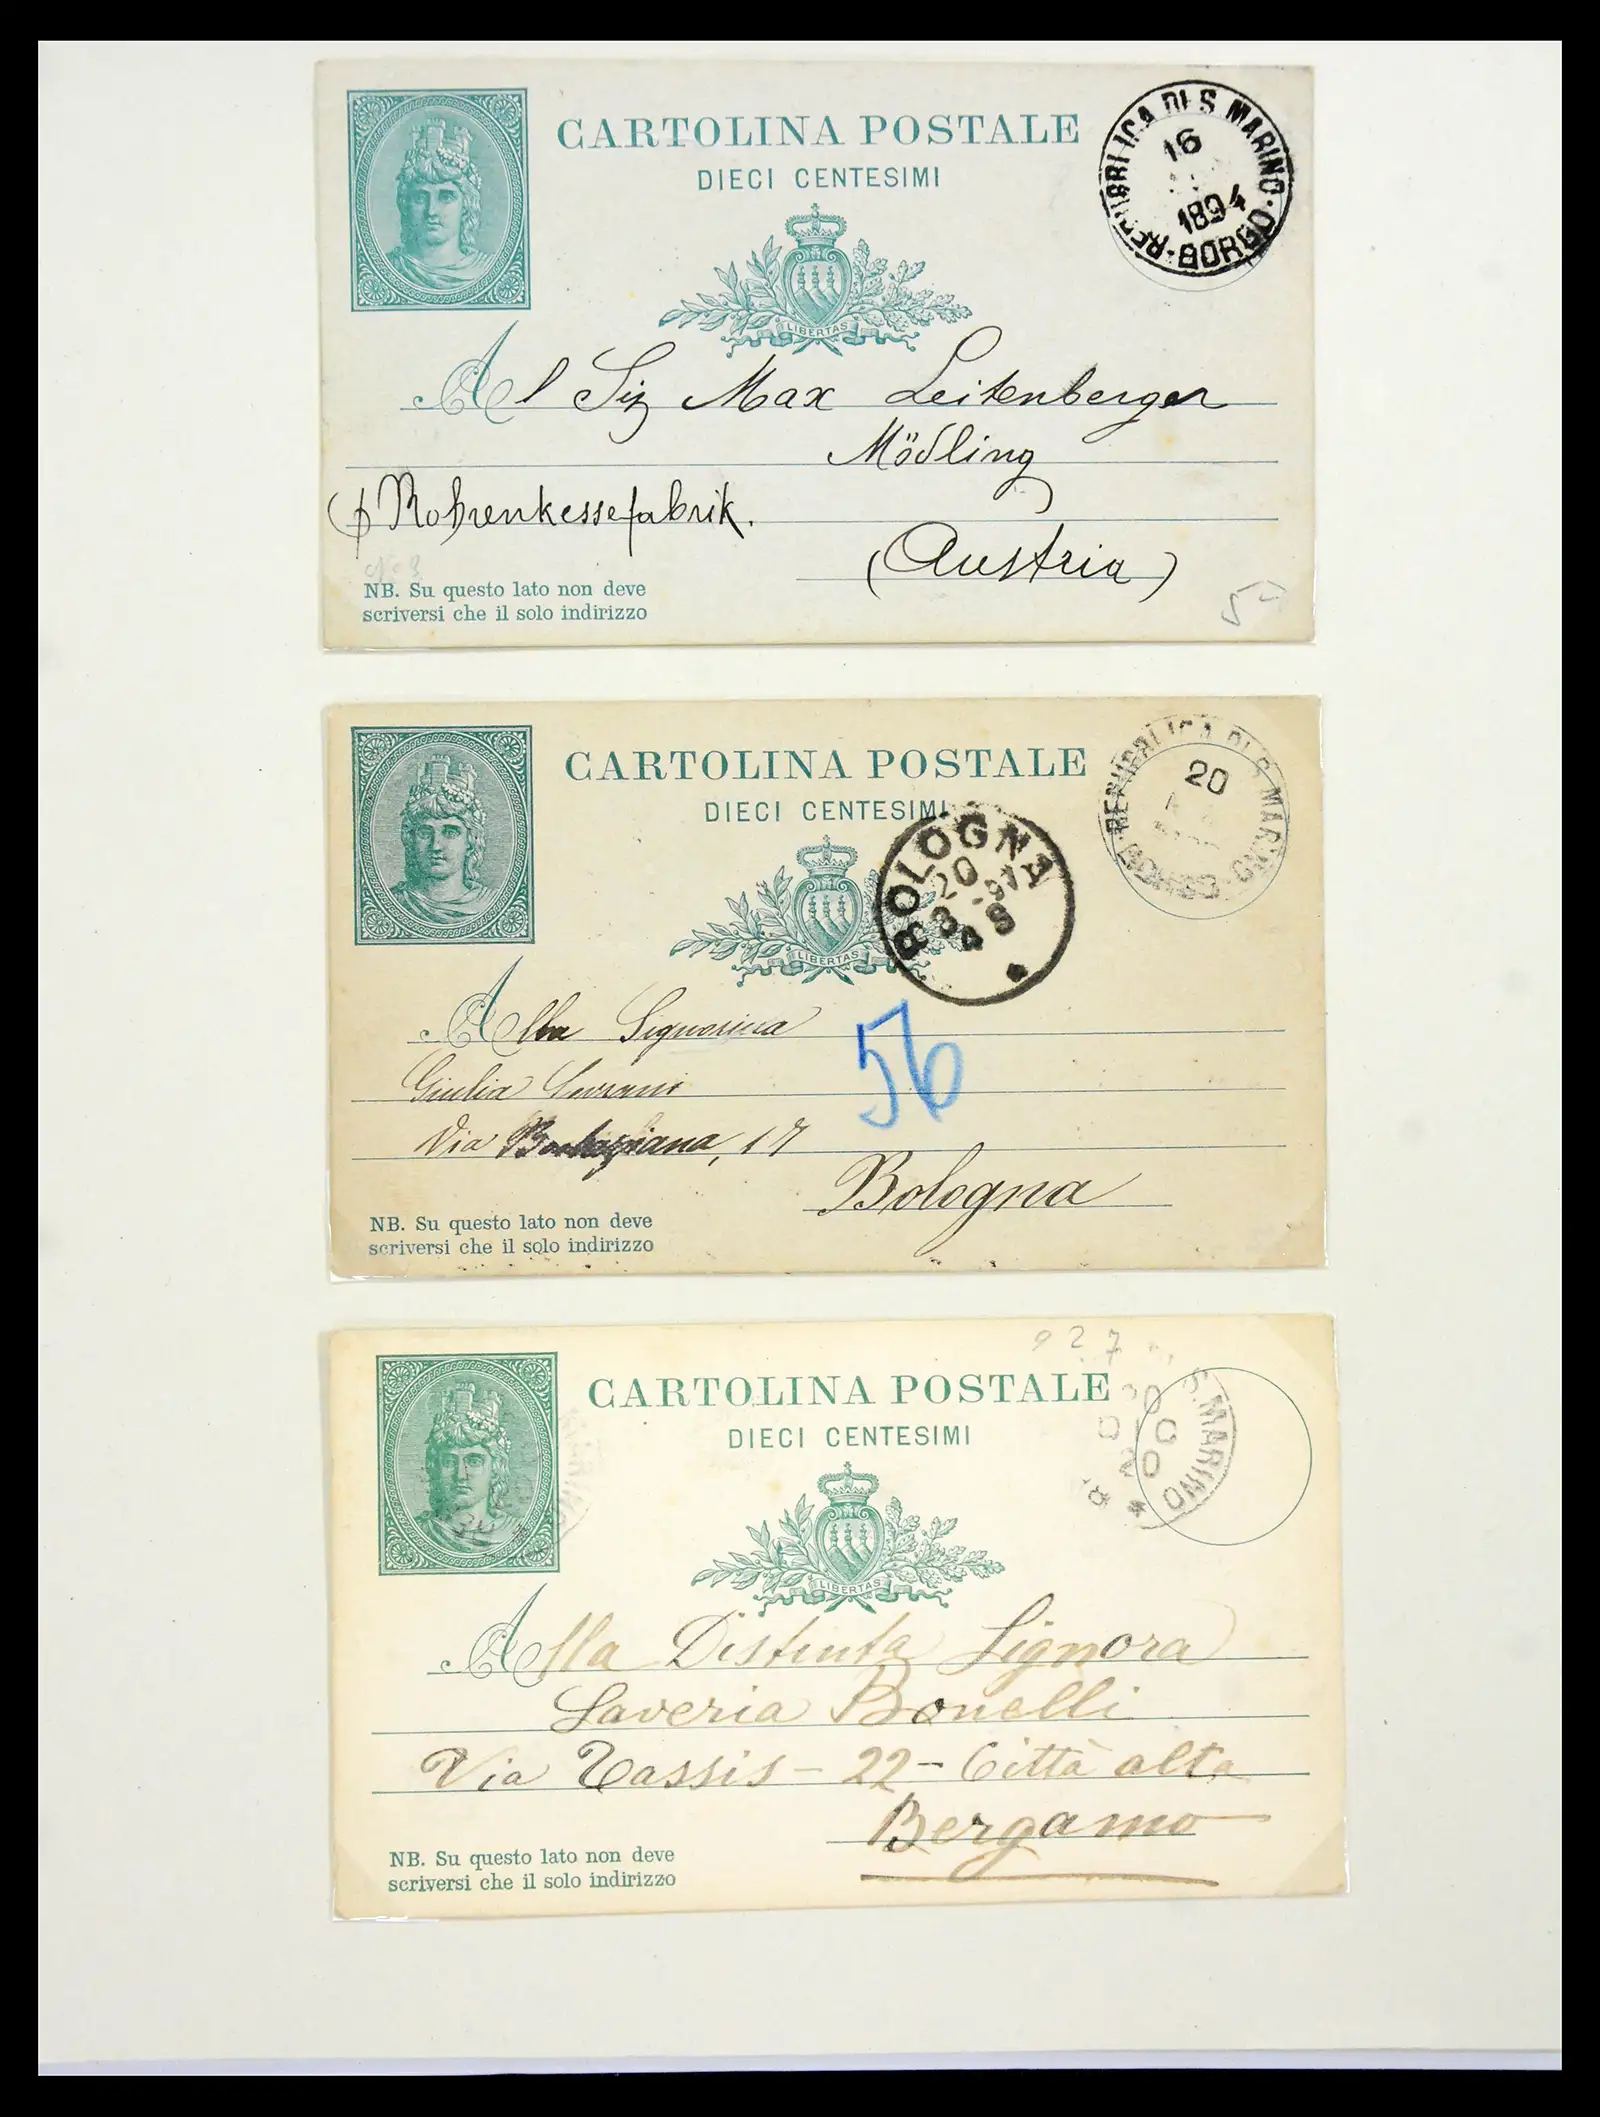 CARTOLINA POSTALE
DIECI CENTESIMI
REPUBBLICA DI S. MARINO · BORGO ·
16
1894
LIBERTAS
Al Sig Max Leitenberger
Mödling
Rohrenkesselfabrik.
(Austria)
NB. Su questo lato non deve
scriversi che il solo indirizzo
5
CARTOLINA POSTALE
DIECI CENTESIMI
REPUBBLICA DI S. MARINO · BORGO ·
20
BOLOGNA
20
3 - 97
4 S
LIBERTAS
Alla Signorina
Giulia
Via 17
56
Bologna
NB. Su questo lato non deve
scriversi che il solo indirizzo
927
CARTOLINA POSTALE
DIECI CENTESIMI
S. MARINO
20
LIBERTAS
Alla Distinta Signora
Saveria Bonelli
Via Tassis - 22 - Città alta
Bergamo
NB. Su questo lato non deve
scriversi che il solo indirizzo